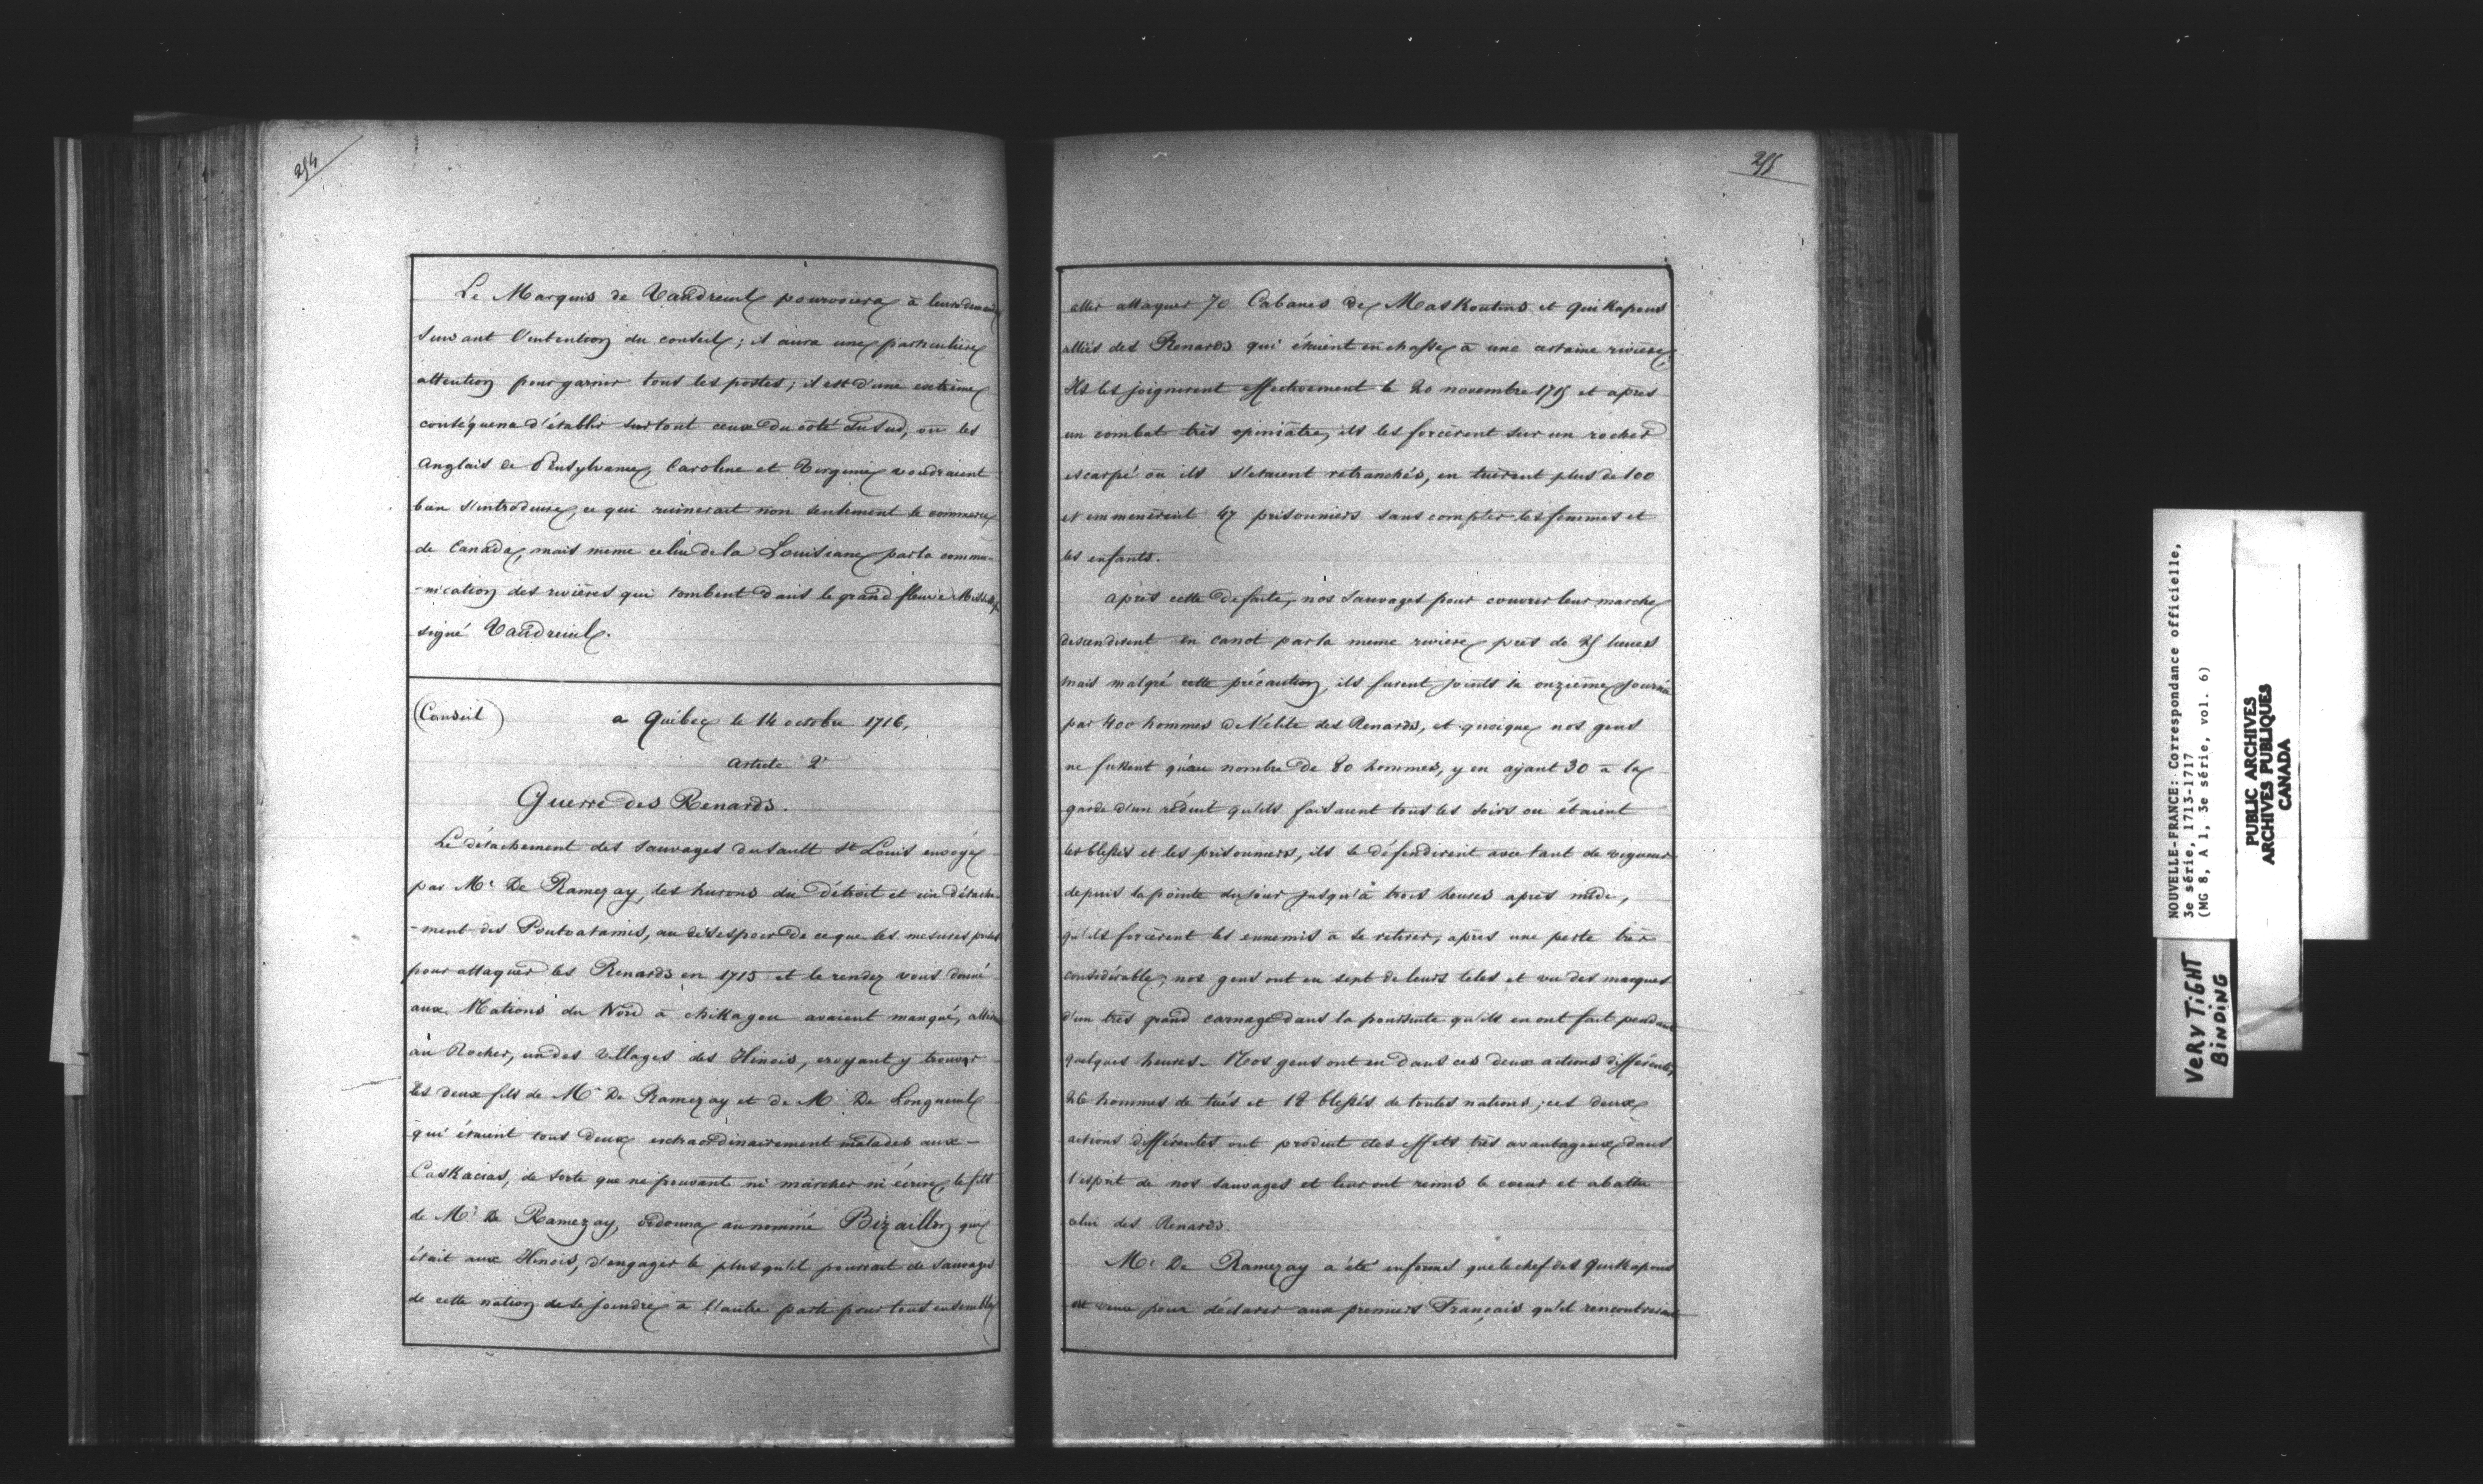 254
Le Marquis de Vaudreuil pourvoiera à leurs demandes
suivant l'intention du conseil; il aura une particulière
attention pour garnir tous les postes; il est d'une extrème
conséquence d'établir surtout ceux du côté du Sud, où les
anglais de Pensylvanie, Caroline et Virginie voudraient
bien s'introduire, ce qui ruinerait non seulement le commerce
de Canada, mais meme celui de la Louisiane par la commu-
-nication des rivières qui tombent dans le grand fleuve Mississipi
signé Vaudreuil.
(Conseil) a Québec le 14 octobre 1716,
article 2e
Guerre des Renards.
Le détachement des sauvages du sault St Louis envoyé
par Mr De Ramezay, les hurons du Détroit et un détache-
-ment des Poutoatamis, au désespoir de ce que les mesures prises
pour attaquer les Renards en 1715 et le rendez vous donné
aux Nations du Nord à chikagou avaient manqué, allèrent
au Rocher, un des villages des Ilinois, croyant y trouver
les deux fils de Mr De Ramezay et de Mr De Longueuil
qui étaient tous deux extraordinairement malades aux
Caskacias, de sorte que ne pouvant ni marcher ni écrire, le fils
de Mr De Ramezay, ordonna au nommé Bizaillon qui
était aux Ilinois, d'engager le plus qu'il pourrait de sauvages
de cette nation de se joindre à l'autre parti pour tous ensemble
255
aller attaquer 70 Cabanes de Maskoutins et Quikapous
alliés des Renards qui étaient en chasse à une certaine rivière.
Ils les joignirent effectivement le 20 novembre 1715 et après
un combat très opiniâtre, ils les forcèrent sur un rocher
escarpé où ils s'étaient retranchés, en tuèrent plus de 100
et emmenèrent 47 prisonniers sans compter les femmes et
les enfants.
après cette défaite, nos sauvages pour couvrir leur marche
descendirent en canot par la meme rivière près de 25 lieues
mais malgré cette précaution, ils furent joints la onzième journée
par 400 hommes de l'élite des Renards, et quoique nos gens
ne fussent qu'au nombre de 80 hommes, y en ayant 30 à la
garde d'un réduit qu'ils faisaient tous les soirs ou étaient
les blessés et les prisonniers, ils se défendirent avec tant de vigueur
depuis la pointe du jour jusqu'à trois heures après midi,
qu'ils forcèrent les ennemis à se retirer, après une perte très
considérable, nos gens ont eu sept de leurs tetes et vu des marques
d'un très grand carnage dans la poursuite qu'ils en ont fait pendant
quelques heures. Nos gens ont eu dans ces deux actions différentes
26 hommes de tués et 18 blessés de toutes nations; ces deux
actions différentes ont produit des effets très avantageux dans
l'esprit de nos sauvages et leur ont remis le coeur et abattu
celui des Renards.
Mr De Ramezay a été informé que le chef des Quikapous
est venu pour déclarer aux premiers Français qu'il rencontrerait
NOUVELLE-FRANCE: Correspondance officielle,
3e série, 1713-1717
(MG 8, A 1, 3e série, vol. 6)
PUBLIC ARCHIVES
ARCHIVES PUBLIQUES
CANADA
VERY TIGHT
BINDING